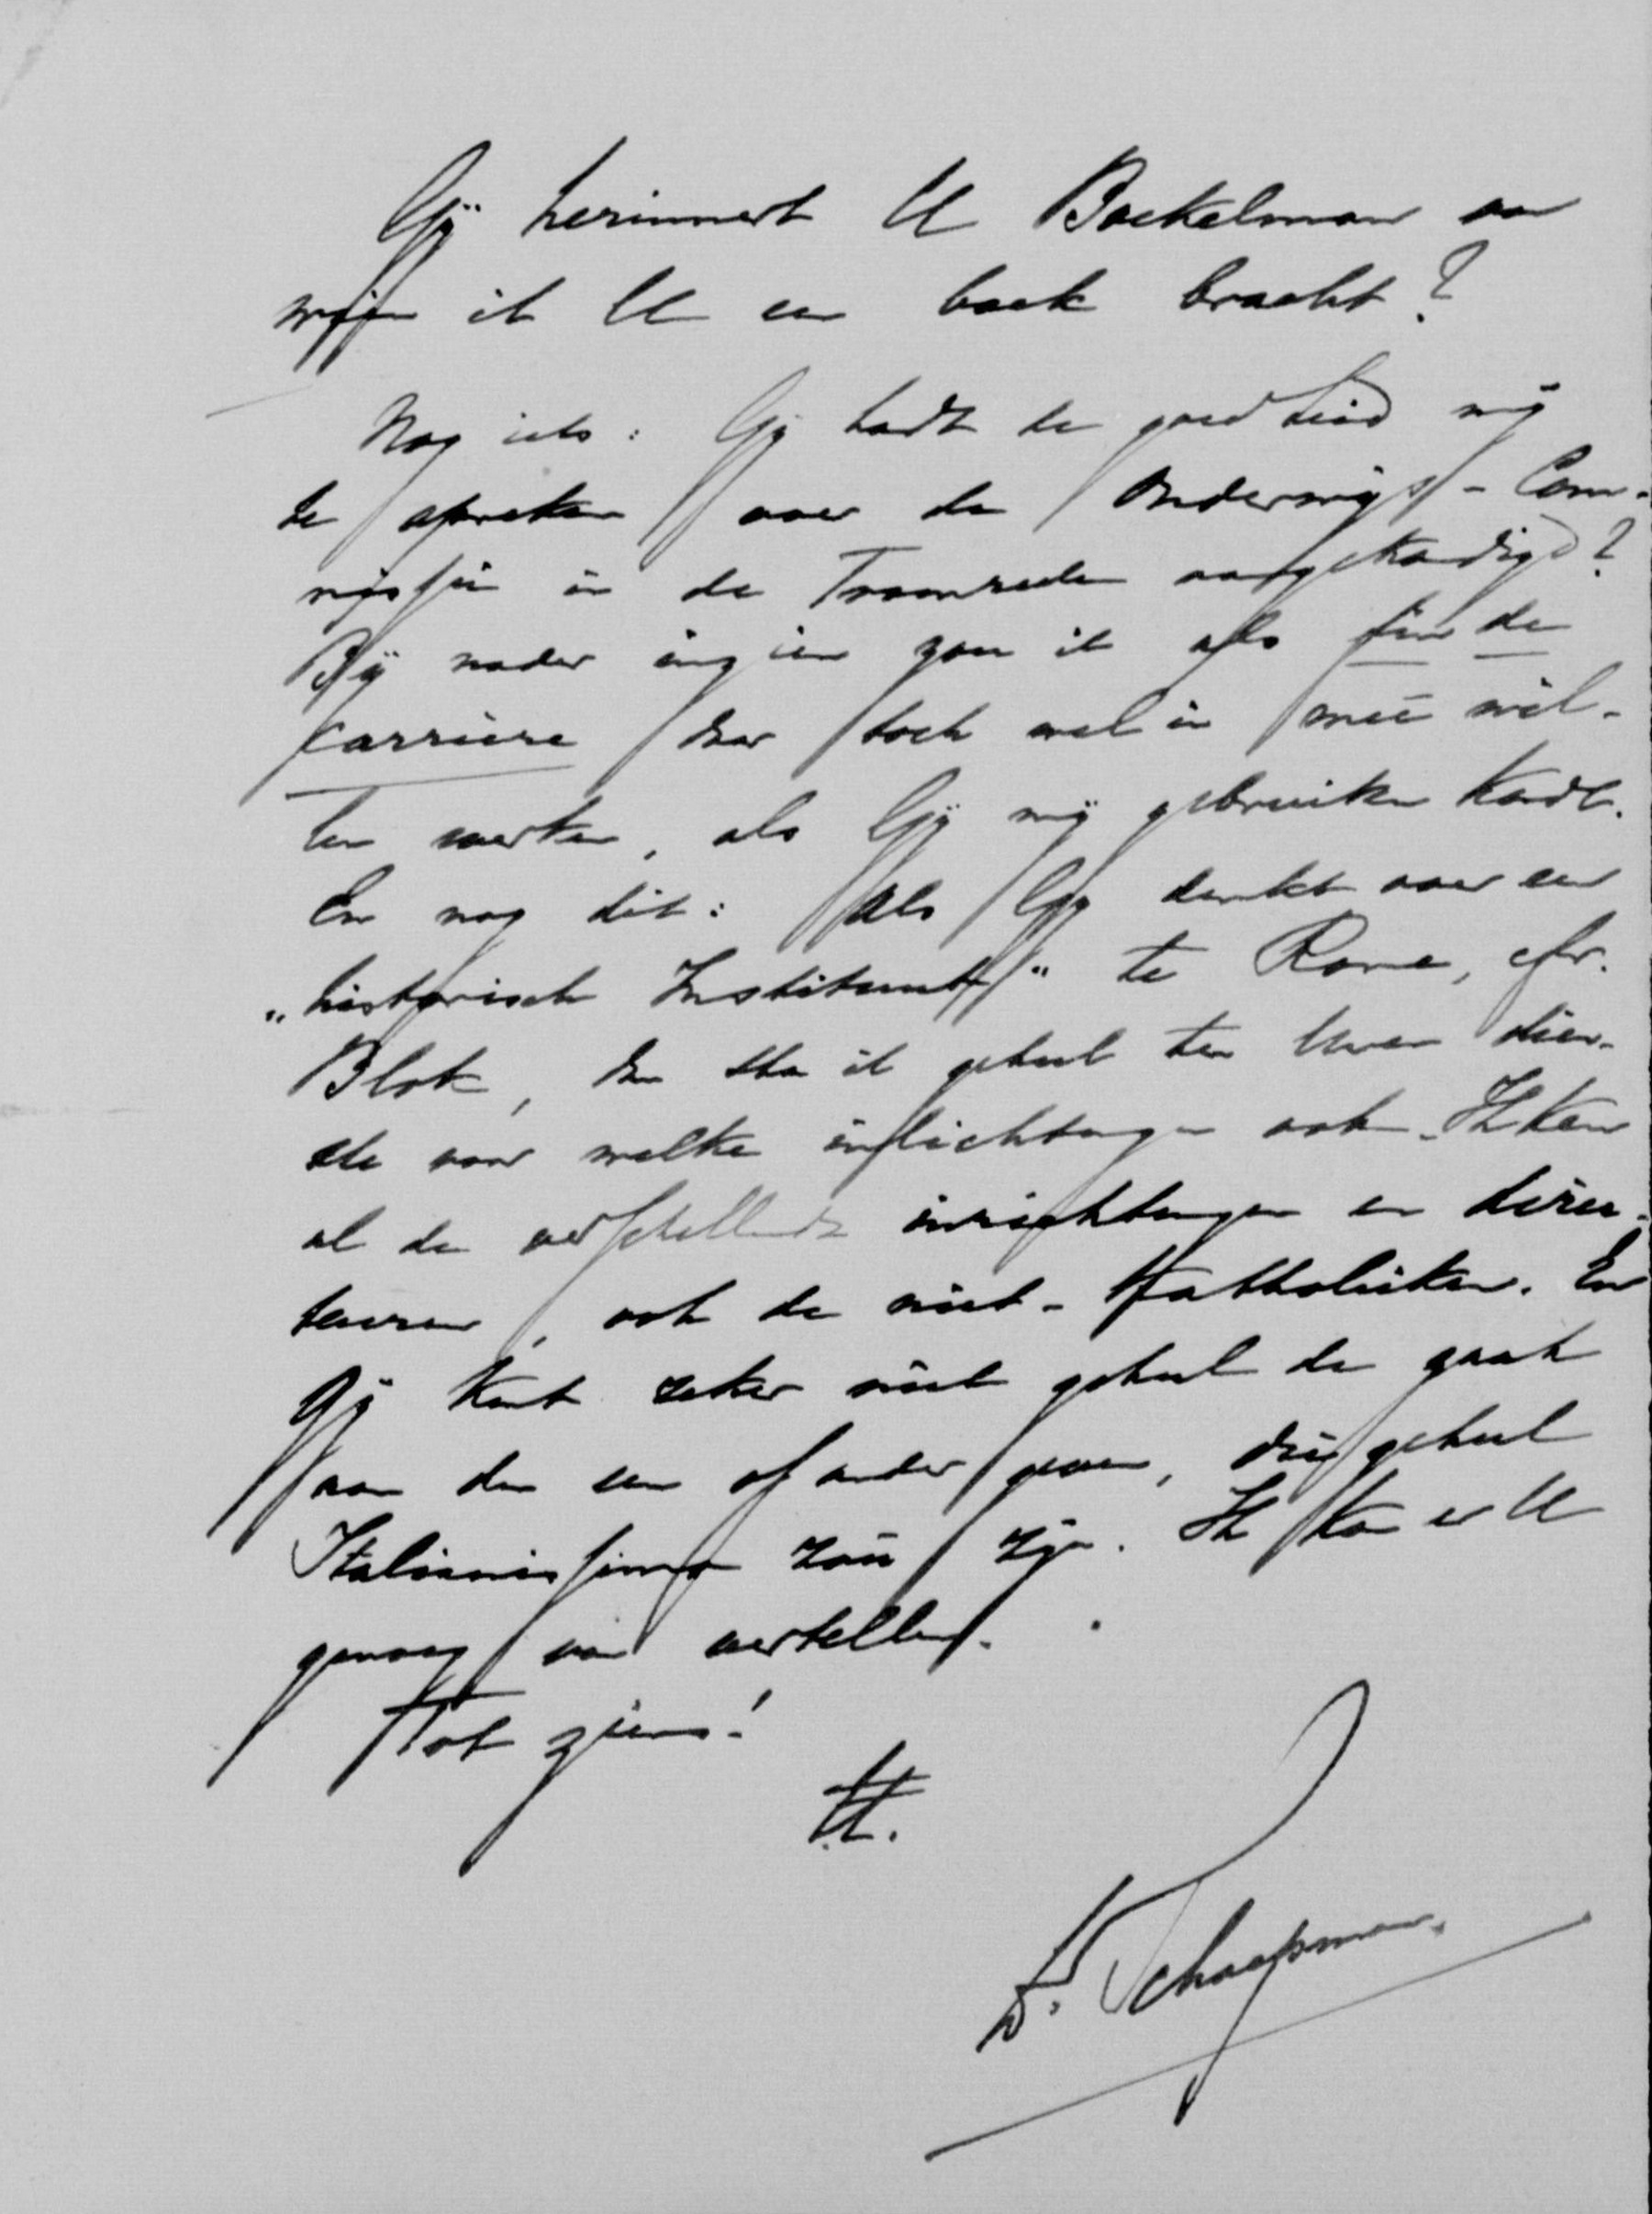 Gij herinnert U Boekelman van
wien ik U een boek bracht?
Nog iets: Gij hadt de goedheid mij
te spreken over de Onderwijs-Com-
missie in de Troonrede aangekondigd?
Bij nader inzien zou ik als fin de
carrière daar toch wel in mee wil-
len werken, als Gij mij gebruiken kondt.
En nog dit: Als Gij denkt over een
„historisch Instituut" te Rome, cfr.
Blok, dan sta ik geheel ten Uwen dien-
ste voor welke inlichtingen ook. Ik ken
al de verschillende inrichtingen en direc-
teuren, ook de niet-Katholieken. En
Gij kunt zeker niet geheel de zaak
aan den een of ander geven, die geheel
Italianissimo zou zijn. Ik kan er U
genoeg van vertellen.
Tot ziens!
tt.
Dr. Schaepman.